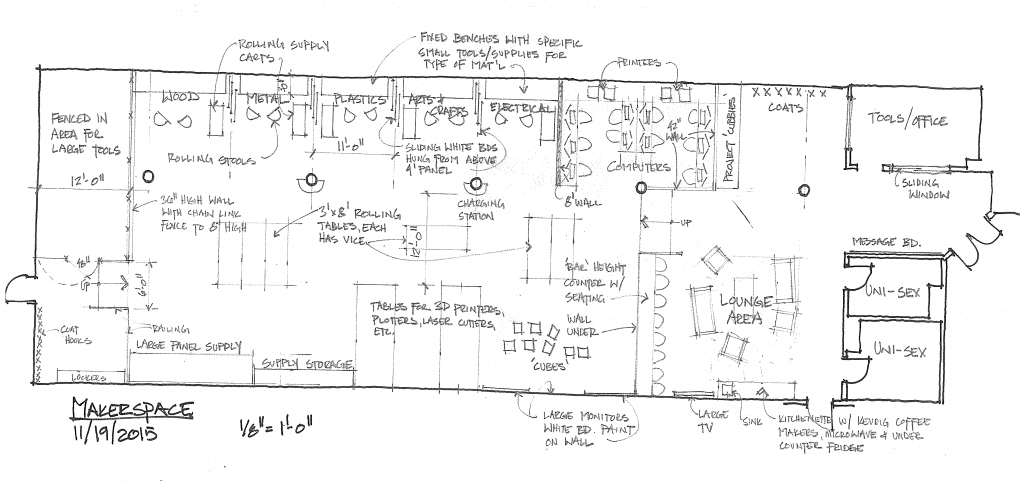 ROLLING SUPPLY
CARTS
FIXED BENCHES WITH SPECIFIC
SMALL TOOLS/SUPPLIES FOR
TYPE OF MAT'L
PRINTERS
WOOD
METAL
PLASTICS
ARTS &
CRAFTS
ELECTRICAL
COATS
FENCED IN
AREA FOR
LARGE TOOLS
TOOLS/OFFICE
42"
WALL
PROJECT 'CUBBIES'
ROLLING STOOLS
11'-0"
SLIDING WHITE BDS
HUNG FROM ABOVE
4' PANEL
COMPUTERS
12'-0"
SLIDING
WINDOW
36" HIGH WALL
WITH CHAIN LINK
FENCE TO 8' HIGH
3'x8' ROLLING
TABLES, EACH
HAS VICE
CHARGING
STATION
8' WALL
UP
12'-0"
MESSAGE BD.
48"
UP
6'-0"
'BAR' HEIGHT
COUNTER W/
SEATING
WALL
UNDER
LOUNGE
AREA
UNI-SEX
TABLES FOR 3D PRINTERS,
PLOTTERS, LASER CUTTERS,
ETC.
COAT
HOOKS
RAILING
LARGE PANEL SUPPLY
SUPPLY STORAGE
'CUBES'
UNI-SEX
LOCKERS
MAKERSPACE
11/19/2015
1/8" = 1'-0"
LARGE MONITORS
WHITE BD. PAINT
ON WALL
LARGE
TV
SINK
KITCHENETTE W/ KEURIG COFFEE
MAKERS, MICROWAVE & UNDER
COUNTER FRIDGE